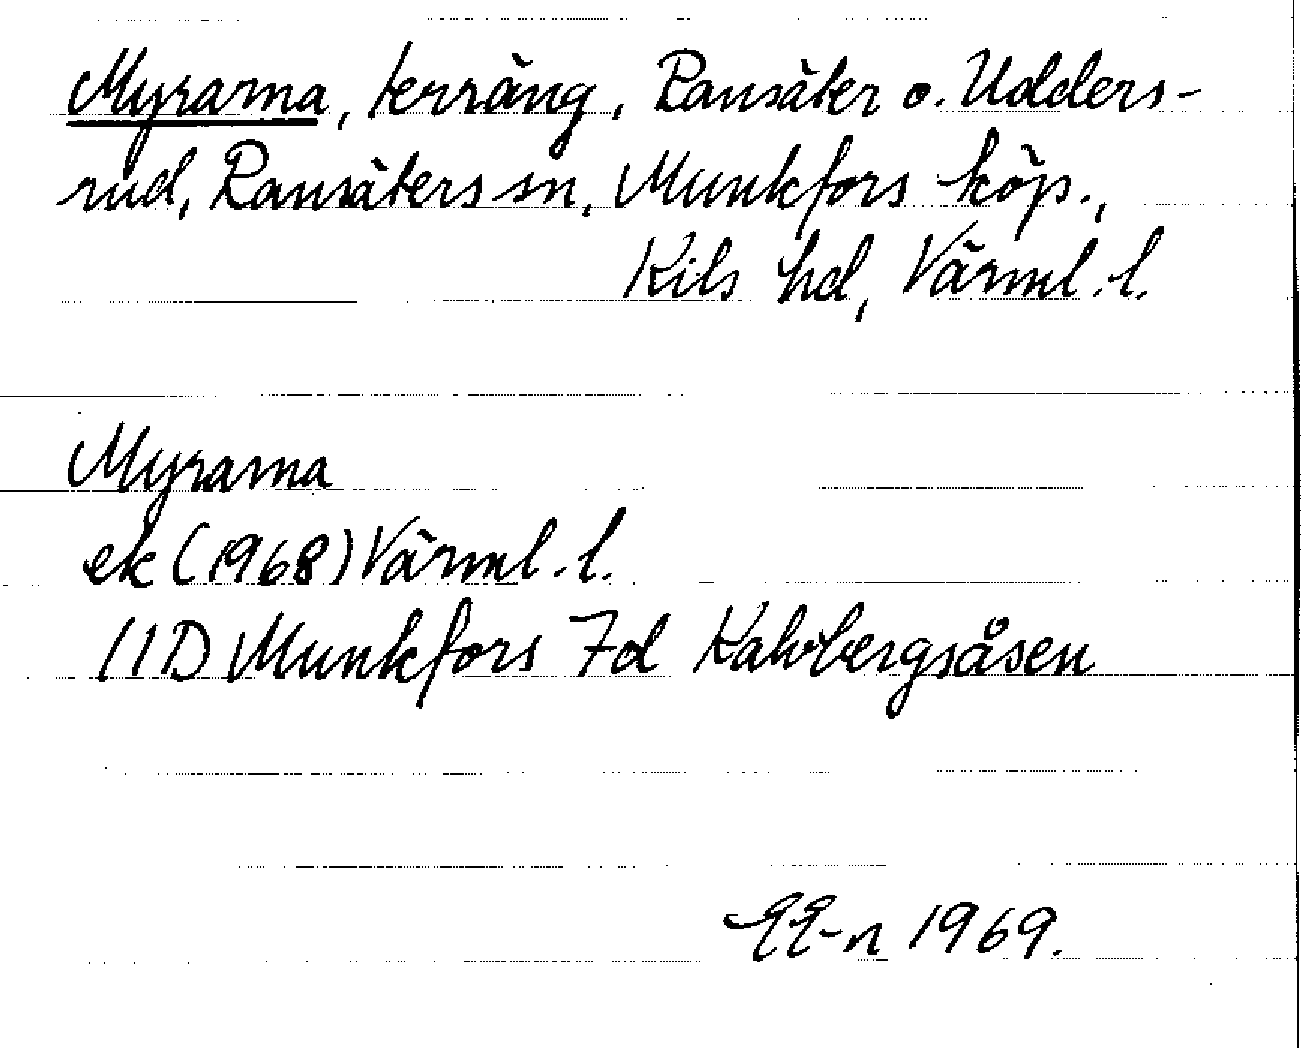 Myrarna, terräng, Ransäter o. Udders-
rud, Ransäters sn, Munkfors köp.,
Kils hd, Värml. l.
Myrarna
ek (1968) Värml. l.
11D Munkfors 7d Kalvbergsåsen
1969.